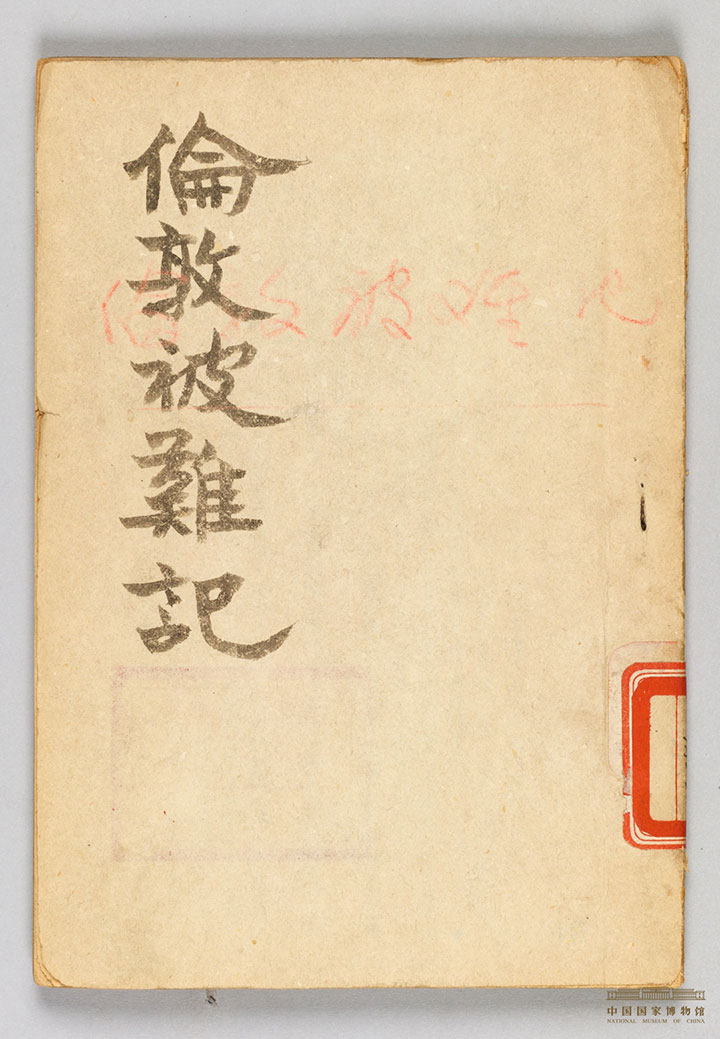 倫敦被難記
倫敦被难记
中国国家博物馆
NATIONAL MUSEUM OF CHINA